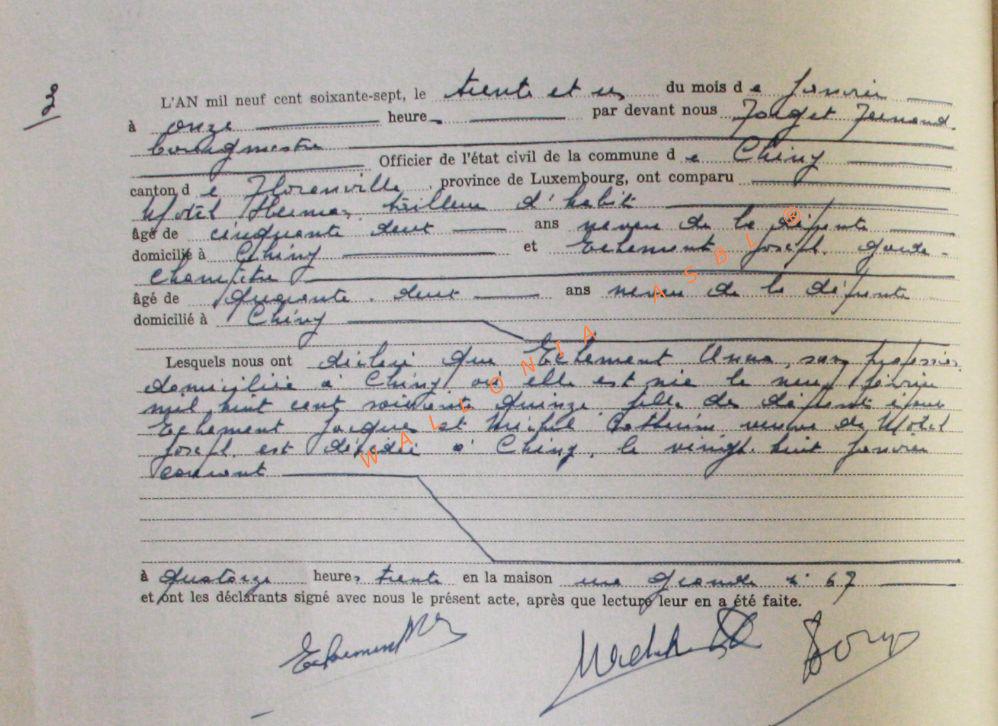 3
L'AN mil neuf cent soixante-sept, le trente et un du mois d e Janvier
à onze heures par devant nous Forget Fernand.
bourgmestre
Officier de l'état civil de la commune d e Chiny
canton d e Florenville, province de Luxembourg, ont comparu
tailleur d'habit
âgé de cinquante deux ans neveu de la défunte
domicilié à Chiny et Echement Joseph, garde-
champêtre
âgé de quarante-deux ans neveu de la défunte
domicilié à Chiny
Lesquels nous ont déclaré que Echement Anna, sans profession
domiciliée à Chiny, où elle est née le neuf février
mil huit cent soixante quinze, fille des défunts époux
Echement Jacques et Catherine veuve de
Joseph, est décédée à Chiny, le vingt huit Janvier
courant
à quatorze heures trente en la maison rue grande n° 67
et ont les déclarants signé avec nous le présent acte, après que lecture leur en a été faite.
WALLONIA ASBL ©
Echement